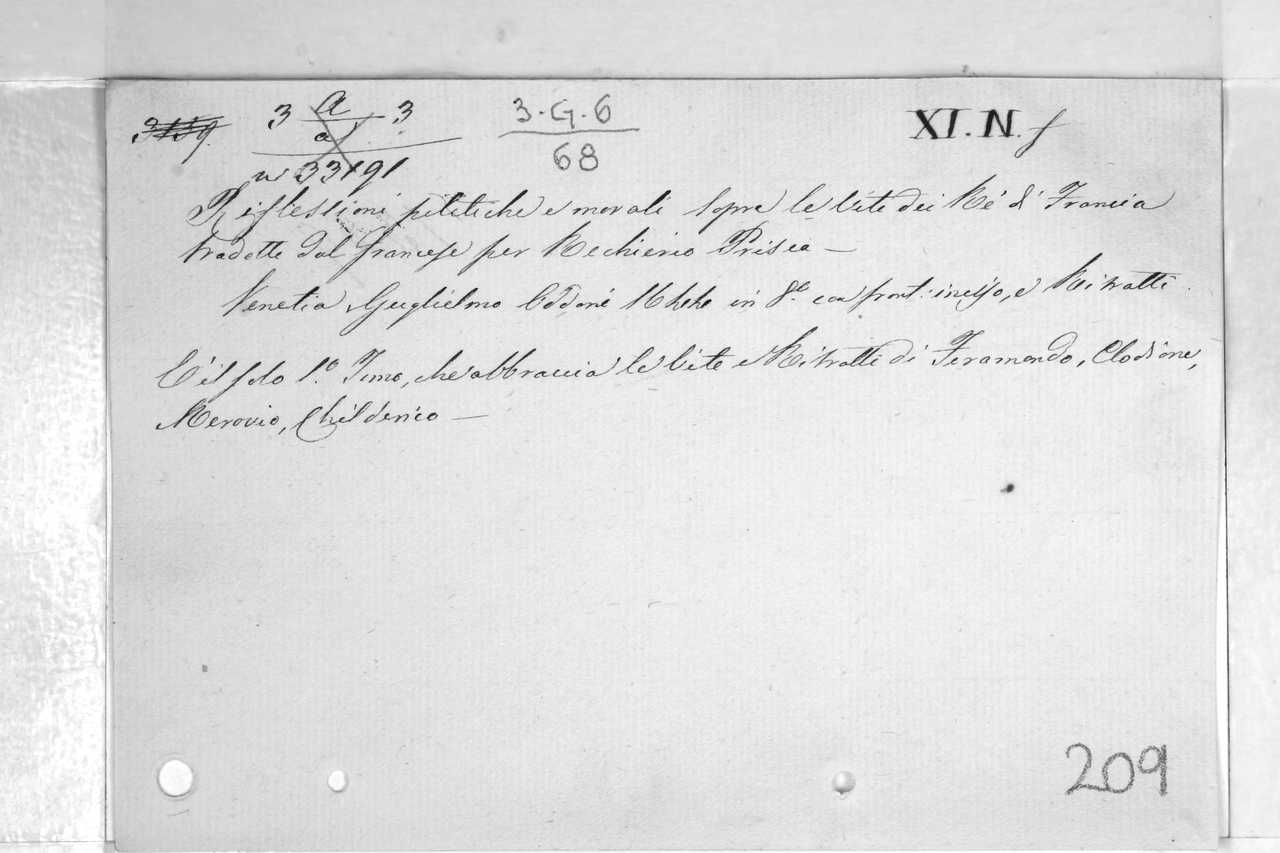 3 a 3 3·G·6 XI.N.f
a 68
n 33191
Riflessioni politiche e morali sopra le Vite dei Ré di Francia
tradotte dal francese per Rechierio Prisca —
Venetia, Guglielmo Oddoni in 8.º con front: inciso, e Ritratti.
È il solo 1.º Tomo, che abbraccia le Vite e Ritratti di Feramondo, Clodione,
Merovio, Childerico —
209